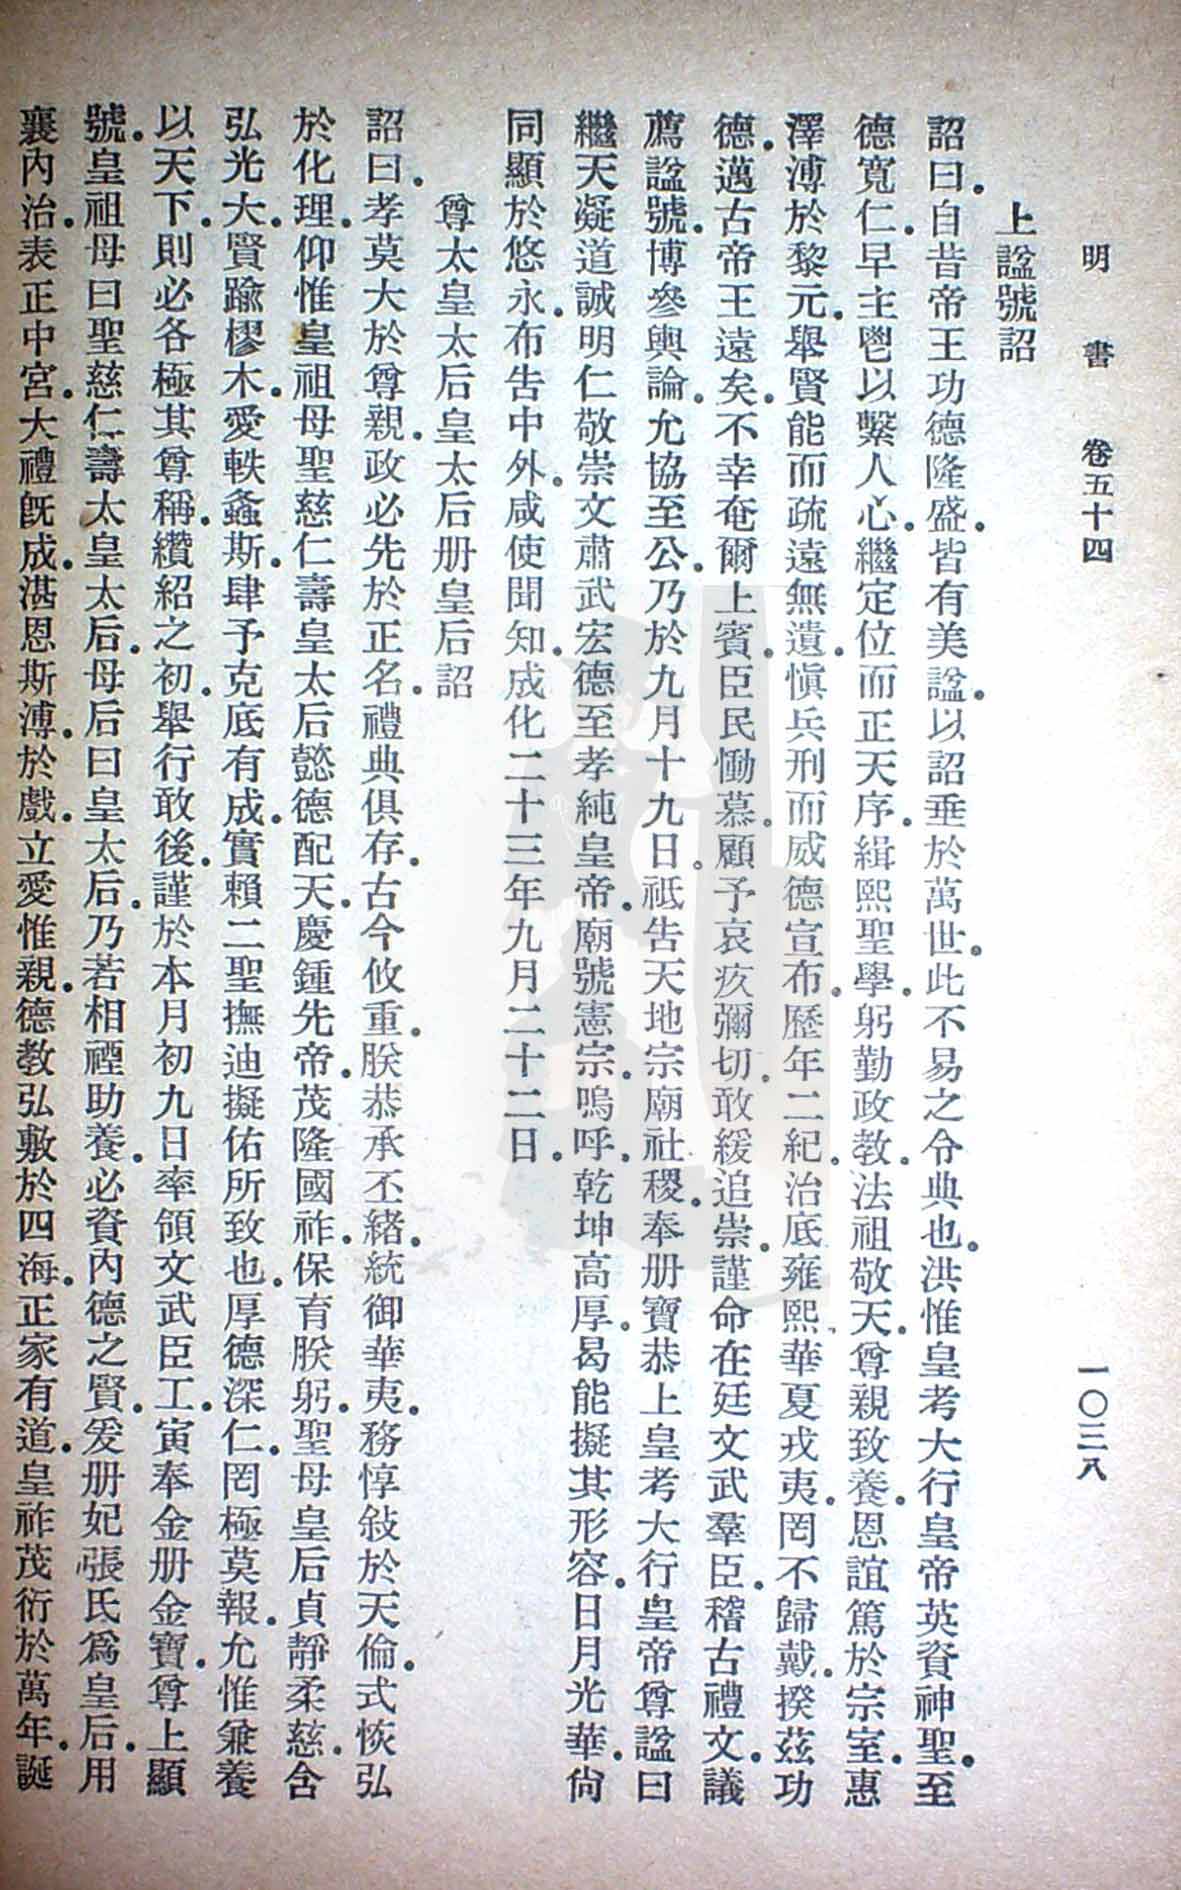 明書 卷五十四 一〇三八
上諡號詔
詔曰。自昔帝王功德隆盛。皆有美諡。以詔垂於萬世。此不易之令典也。洪惟皇考大行皇帝英資神聖。至
德寬仁。早主鬯以繫人心。繼定位而正天序。緝熙聖學。躬勤政教。法祖敬天。尊親致養。恩誼篤於宗室。惠
澤溥於黎元。舉賢能而疏遠無遺。愼兵刑而威德宣布。歷年二紀。治底雍熙。華夏戎夷。罔不歸戴。揆茲功
德。邁古帝王遠矣。不幸奄爾上賓。臣民慟慕。顧予哀疚彌切。敢緩追崇。謹命在廷文武羣臣。稽古禮文。議
薦諡號。博參輿論。允協至公。乃於九月十九日。祗告天地宗廟社稷。奉册寶恭上皇考大行皇帝尊諡曰
繼天凝道誠明仁敬崇文肅武宏德至孝純皇帝。廟號憲宗。嗚呼。乾坤高厚。曷能擬其形容。日月光華。尙
同顯於悠永。布告中外。咸使聞知。成化二十三年九月二十二日。
尊太皇太后皇太后册皇后詔
詔曰。孝莫大於尊親。政必先於正名。禮典俱存。古今攸重。朕恭承丕緒。統御華夷。務惇敍於天倫。式恢弘
於化理。仰惟皇祖母聖慈仁壽皇太后懿德配天。慶鍾先帝。茂隆國祚。保育朕躬。聖母皇后貞靜柔慈。含
弘光大。賢踰樛木。愛軼螽斯。肆予克底有成。實賴二聖撫迪擬佑所致也。厚德深仁。罔極莫報。允惟兼養
以天下。則必各極其尊稱。纘紹之初。舉行敢後。謹於本月初九日率領文武臣工。寅奉金册金寶。尊上顯
號。皇祖母曰聖慈仁壽太皇太后。母后曰皇太后。乃若相禋助養。必資內德之賢。爰册妃張氏爲皇后。用
襄內治。表正中宮。大禮旣成。湛恩斯溥。於戲。立愛惟親。德教弘敷於四海。正家有道。皇祚茂衍於萬年。誕